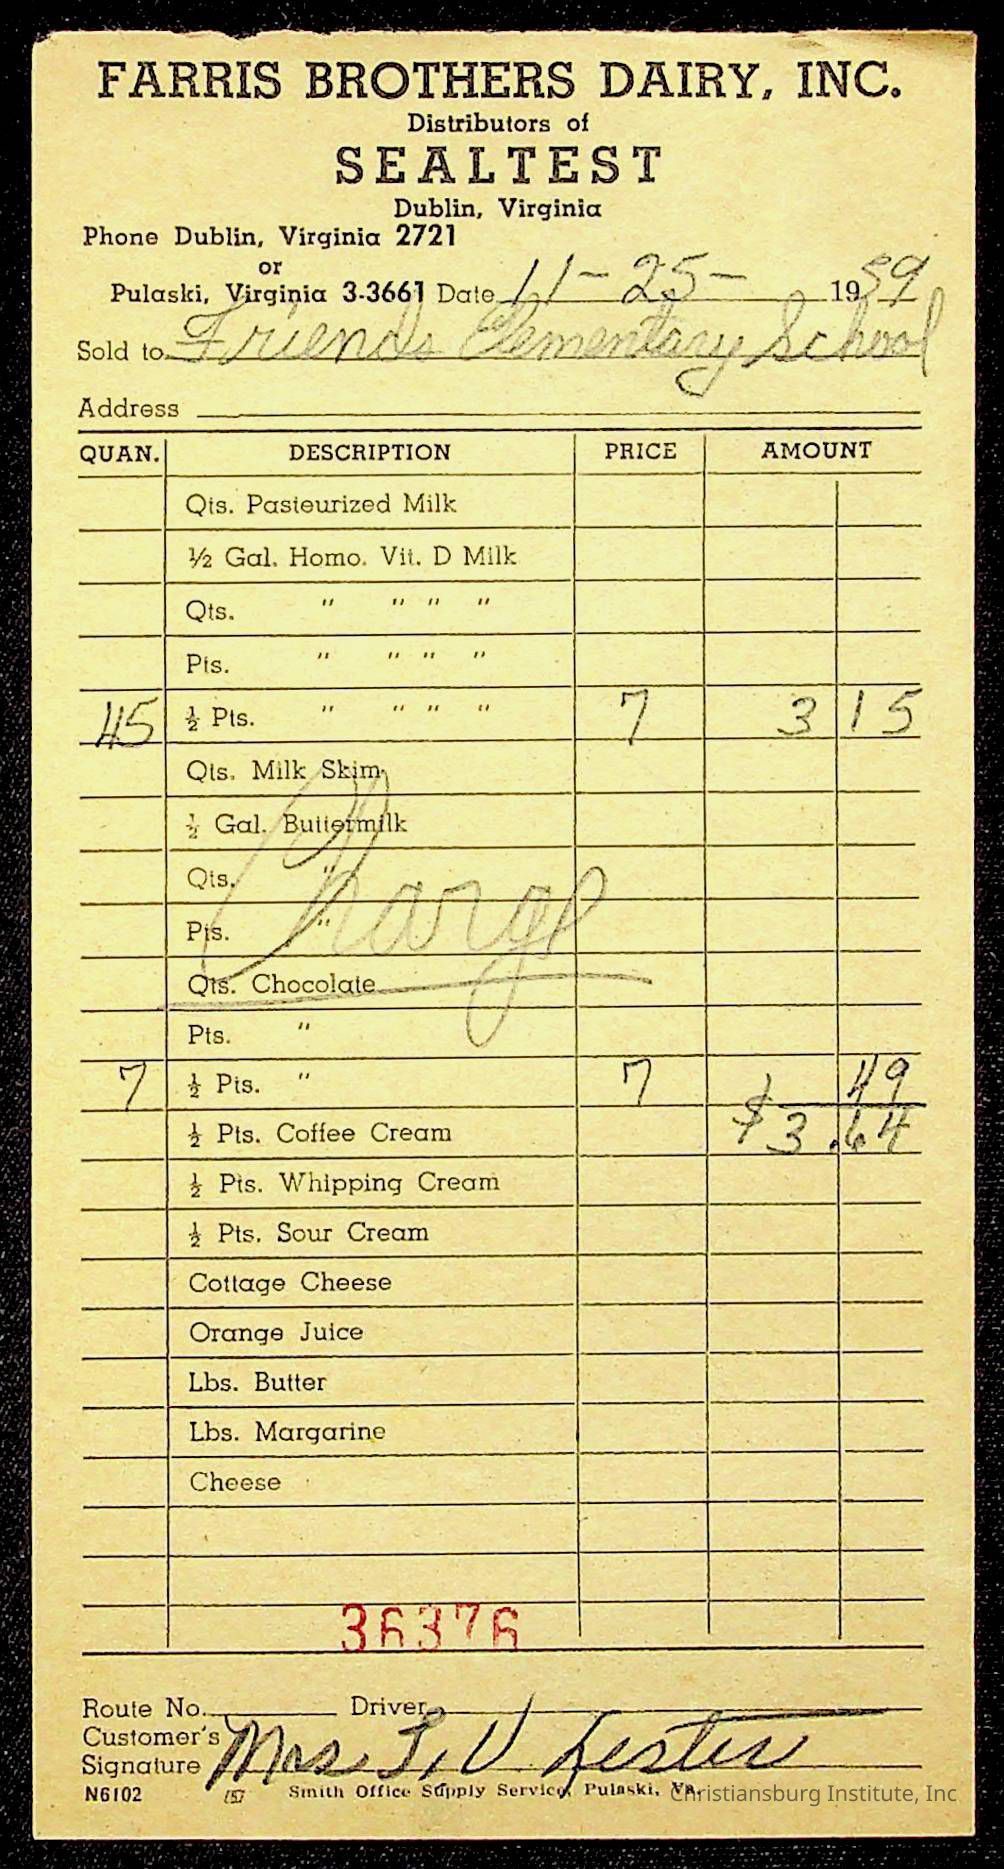 FARRIS BROTHERS DAIRY, INC.
Distributors of
SEALTEST
Dublin, Virginia
Phone Dublin, Virginia 2721
or
Pulaski, Virginia 3-3661 Date 11-25- 1959
Sold to Friends Elementary School
Address
QUAN. DESCRIPTION PRICE AMOUNT
Qts. Pasteurized Milk
½ Gal. Homo. Vit. D Milk
Qts. " " " "
Pts. " " " "
45 ½ Pts. " " " " 7 3 15
Qts. Milk Skim
½ Gal. Buttermilk
Qts. "
Charge
Pts. "
Qts. Chocolate
Pts. "
7 ½ Pts. " 7 49
½ Pts. Coffee Cream $3.64
½ Pts. Whipping Cream
½ Pts. Sour Cream
Cottage Cheese
Orange Juice
Lbs. Butter
Lbs. Margarine
Cheese
36376
Route No. Driver
Customer's
Signature Mrs. L. V Lester
N6102 (57 Smith Office Supply Service, Pulaski, Va.
Christiansburg Institute, Inc